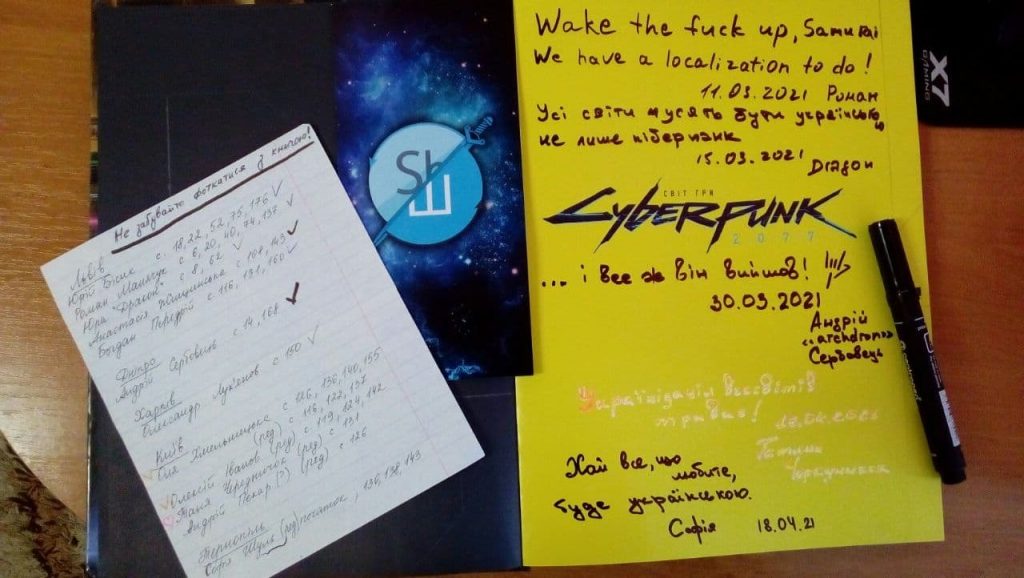 Не забувайте фоткатися з книгою!
Львів
Юрій Бісик с. 18, 22, 52, 75, 176 ✓
Роман с. 6, 20, 40, 74, 137 ✓
Юра "Дракон" с. 8, 62 ✓
Анастасія с. 108, 143 ✓
Богдан Передрій с. 116, 131, 160 ✓
Дніпро
Андрій Сербовець с. 14, 168 ✓
Харків
Олександр Лук'янов с. 150 ✓
Київ
Хмельницька с. 126, 136, 140, 155
Олексій Іванов (ред) с. 116, 122, 137
Таня (ред) с. 119, 124, 142
Андрій (?) (ред) с. 131
с 126
Тернопіль
Софія Шуль (ред) початок, 136, 138, 143
Sh
Ш
Wake the fuck up, Samurai
We have a localization to do!
11.03.2021 Роман
Усі світи мусять бути українські,
не лише кіберпанк
15.03.2021
Dragon
СВІТ ГРИ
CYBERPUNK
2077
... і все ж він вийшов!
30.03.2021
Андрій
"archdron"
Сербовець
Українізація всесвітів
триває!
Тетяна
Хай все, що
любите,
буде українською.
Софія 18.04.21
X7
GAMING